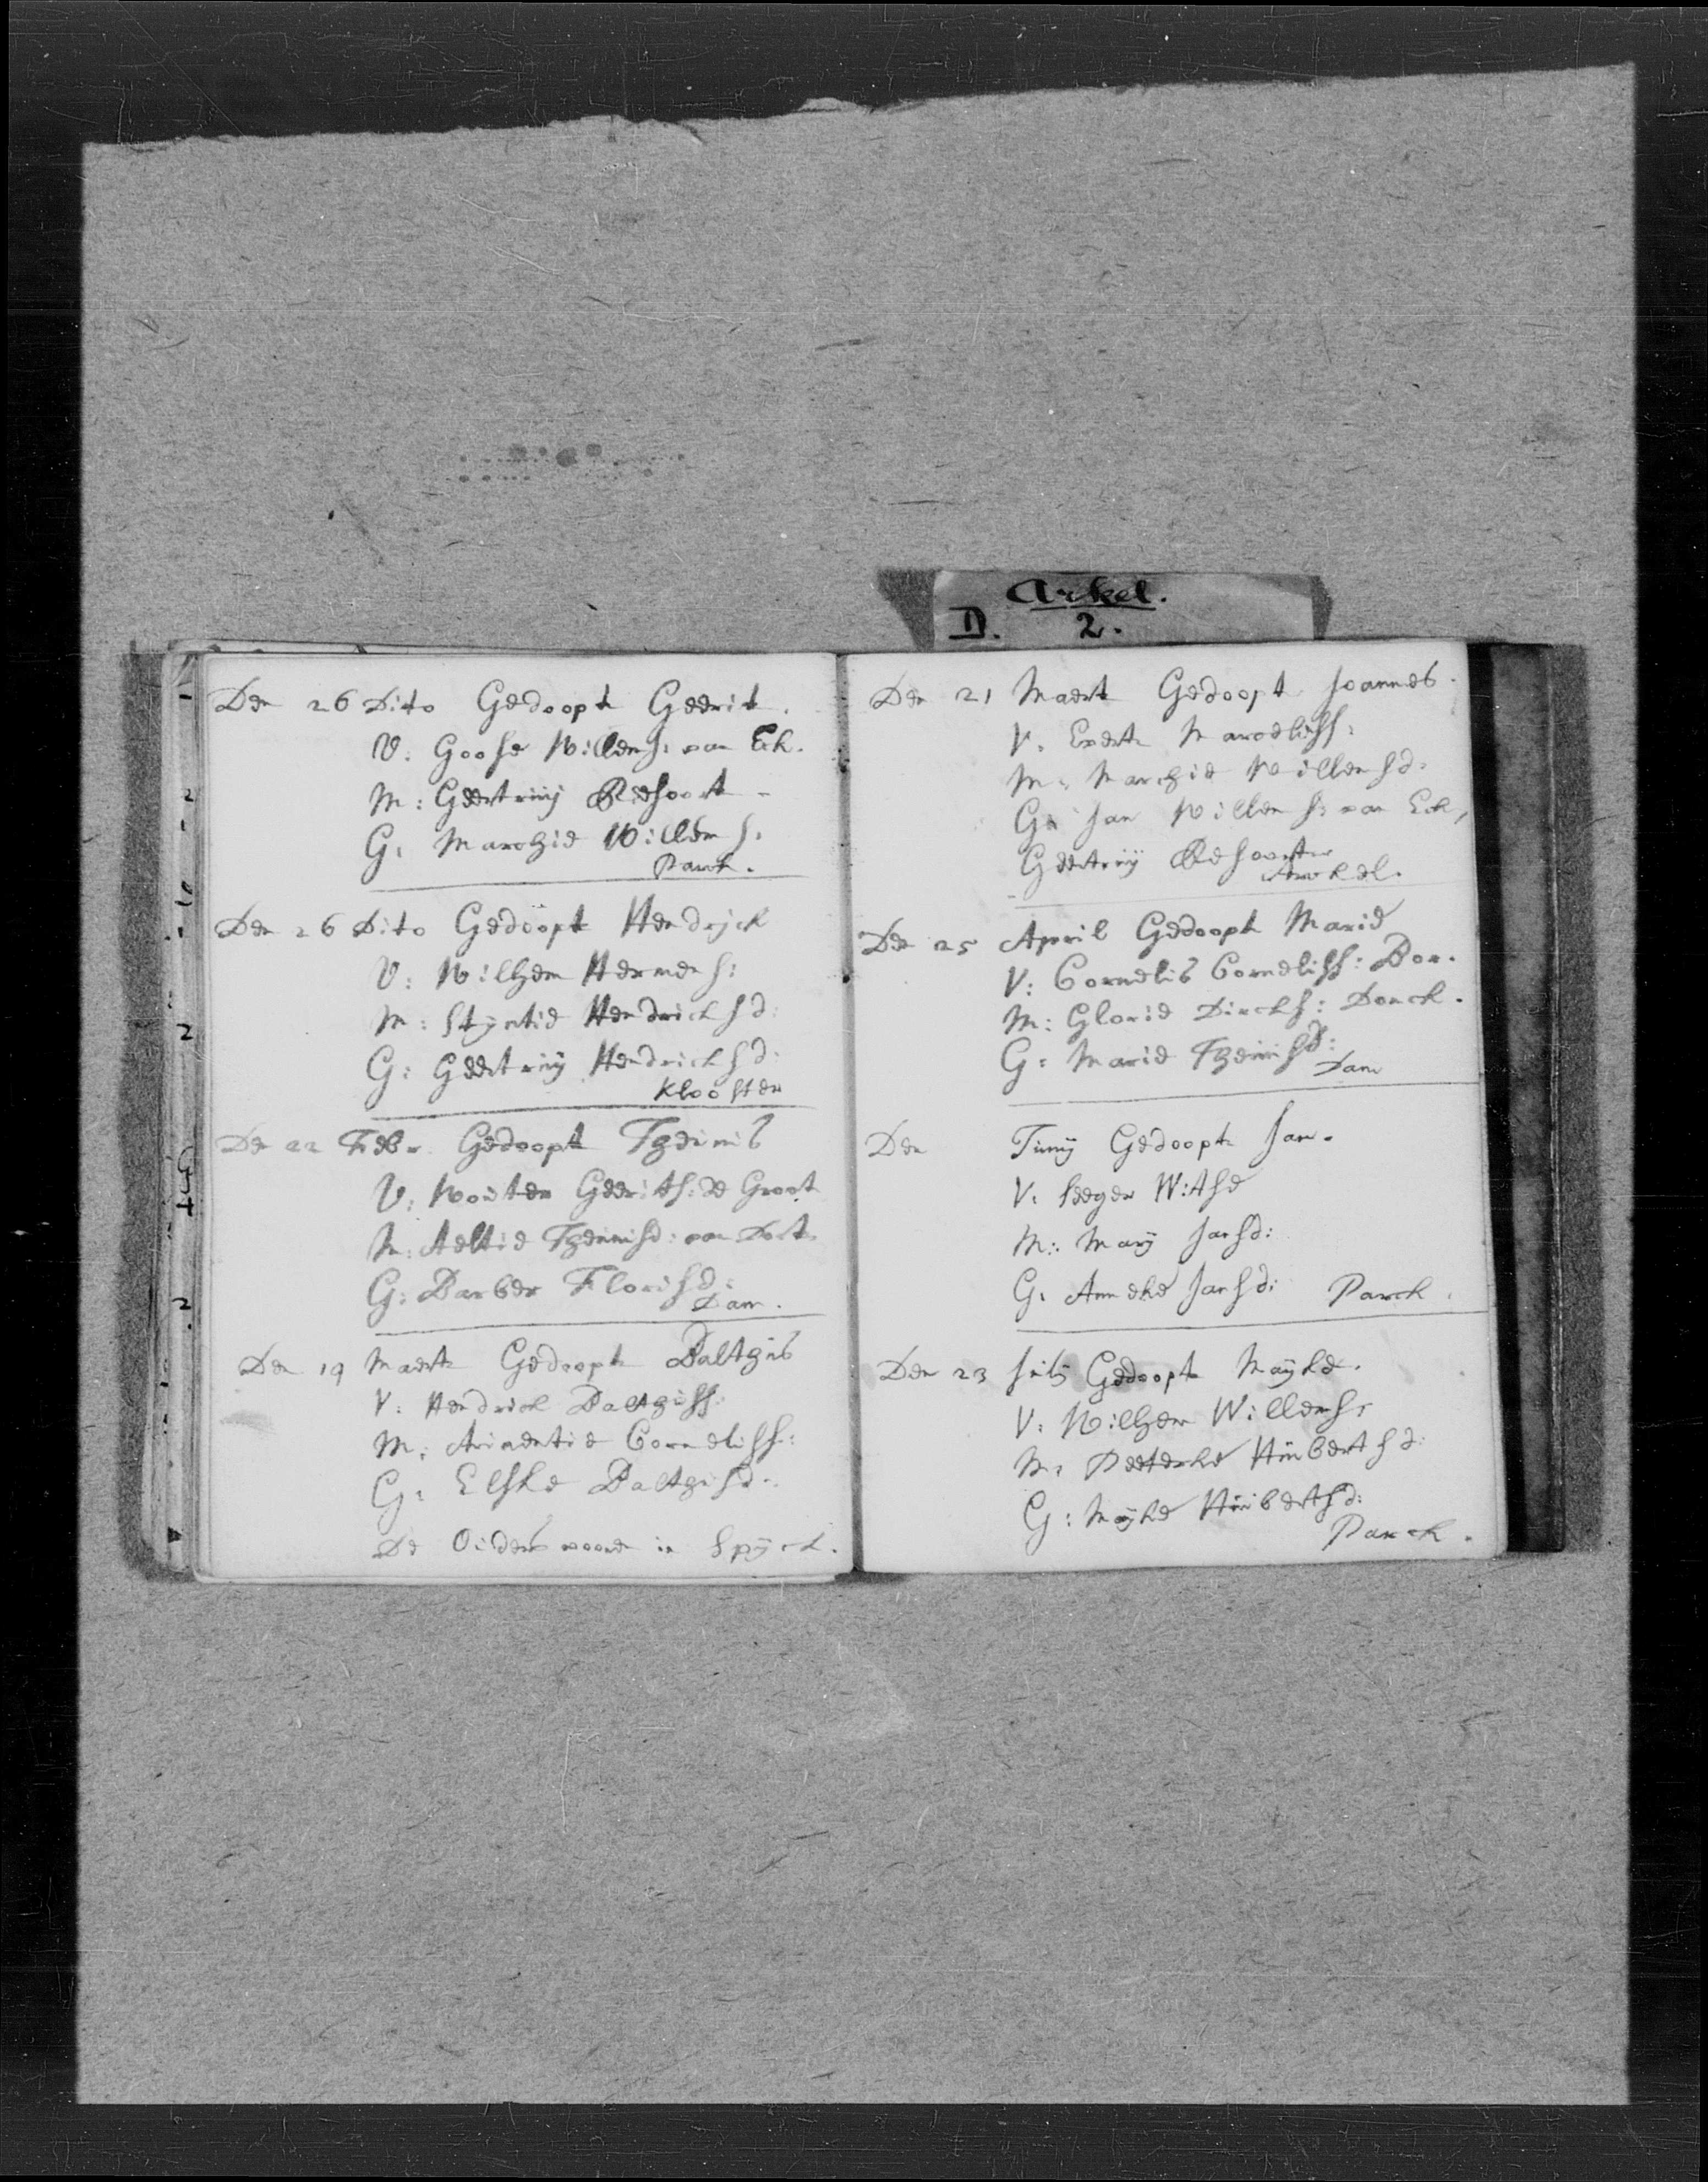 Arkel.
D. 2.
Den 26 Dito Gedoopt Geerit.
V: Goose Willems: van Eck.
M: Geertruÿ Riesoort
G: Marchie Willems:
Parck.
Den 26 Dito Gedoopt Hendrijck
V: Wilhem Hermens:
M: Stÿntie Hendricksd:
G: Geertruÿ Hendricksd:
Klooster
Den 22 Febr. Gedoopt Theunis
V: Wouter Geerits: de Groot
M: Aeltie Theunisd: van Dort
G: Barber Florisd:
Dam.
Den 19 Maert Gedoopt Balthus
V: Hendrick Balthuss:
M: Ariaentie Corneliss:
G: Elske Balthusd:
De Ouders woonen in Spÿck.
Den 21 Maert Gedoopt Joannes.
V: Evert Marceliss:
M: Marchie Willemsd:
G: Jan Willems: van Eck,
Geertruÿ
Arckel.
Den 25 April Gedoopt Marie
V: Cornelis Corneliss: Bor.
M: Glorie Dircks: Donck.
G: Marie Theunisd:
Dam
Den Junÿ Gedoopt Jan.
V: Seeger Witse
M: Marÿ Jansd:
G: Anneke Jansd: Parck.
Den 23 Julÿ Gedoopt Maÿke.
V: Wilhem Willems:
M: Peeterke Huibertsd:
G: Maÿke Huibertsd:
Parck.